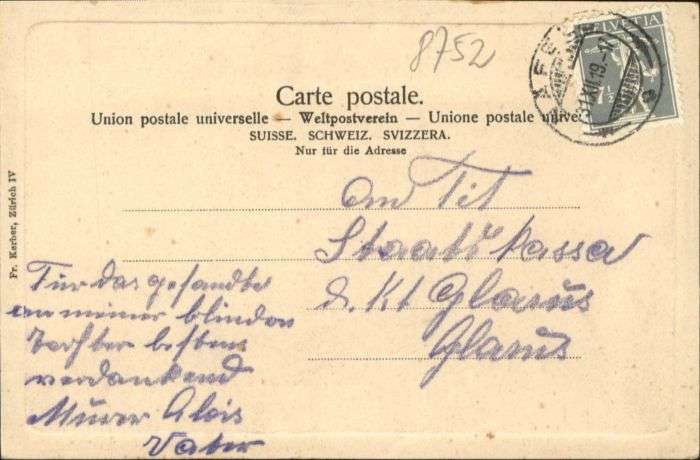 8752
HELVETIA
7½
Carte postale.
Union postale universelle — Weltpostverein — Unione postale
SUISSE. SCHWEIZ. SVIZZERA.
Nur für die Adresse
Fr. Kerber, Zürich IV
an Tit
Staatskassa
d. Kt Glarus
Glarus
Für das gesandte
an meiner blinden
Tochter bestens
verdankend
Murer Alois
Vater